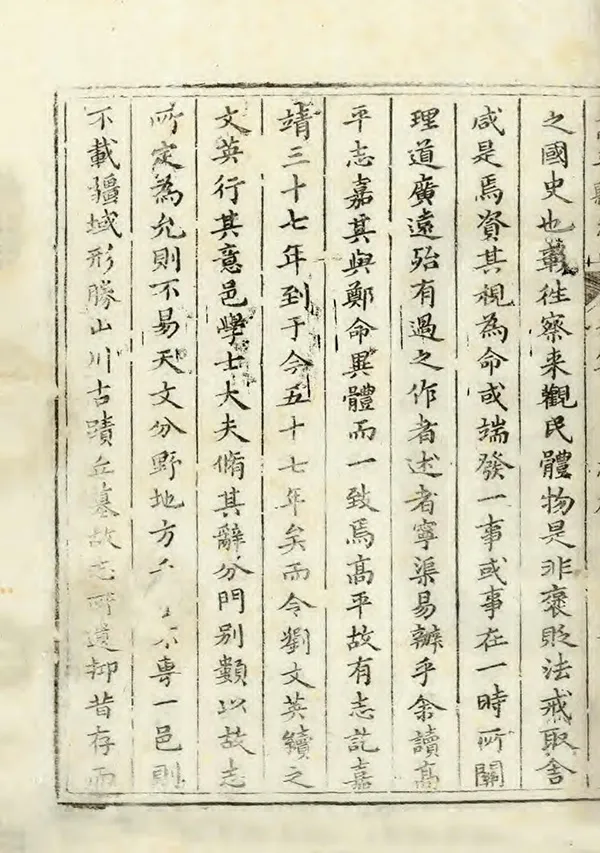 之國史也彰往察来觀民體物是非褒貶法戒取舎
咸是焉資其視為命或端發一事或事在一時所關
理道廣遠殆有過之作者述者寧渠易辦乎余讀髙
平志嘉其與鄭命異體而一致焉髙平故有志訖嘉
靖三十七年到于今五十七年矣而令劉文英續之
文英行其意邑學士大夫脩其辭分門别𩔖以故志
所定為允則不易天文分野地方不專一邑則
不載疆域形勝山川古蹟丘墓故志所遺抑昔存而